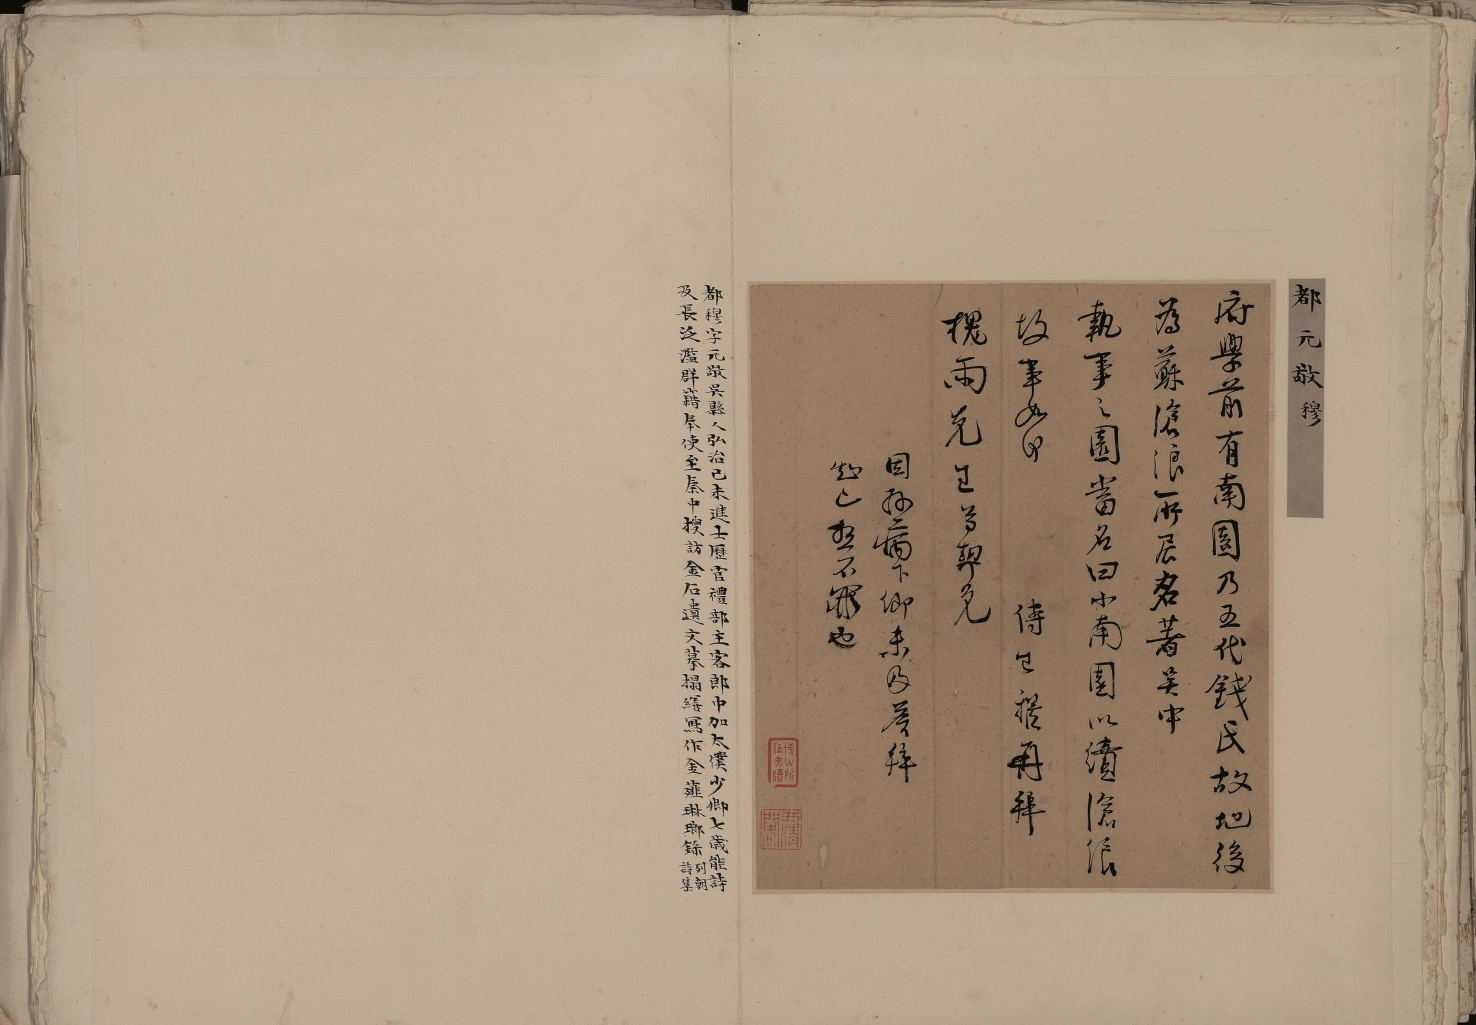 都元敬穆
府學前有南園乃五代錢氏故地後
為蘇滄浪所居名著吳中
執事之園當名曰小南園以續滄浪
故事如何 侍生穆再拜
槐雨先生尊契兄
因孫病下鄉未及答拜
不罪也
都穆字元敬吳縣人弘治己未進士歷官禮部主客郎中加太僕少卿七歲能詩
及長泛濫群籍奉使至秦中搜訪金石遺文摹搨繕寫作金薤琳瑯錄列朝詩集